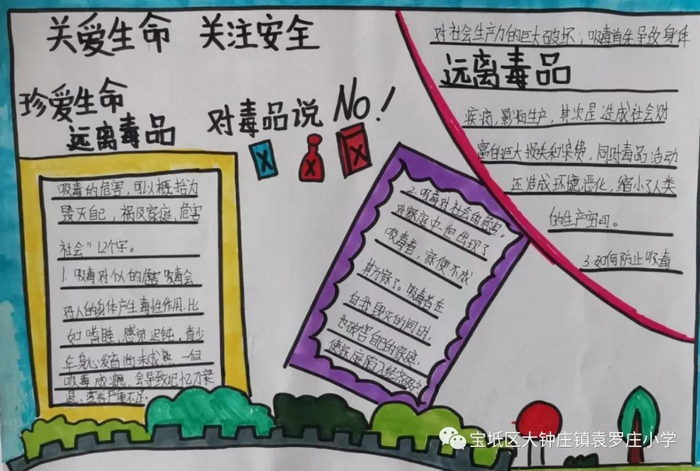 关爱生命 关注安全
珍爱生命
远离毒品
对毒品说 NO!
吸毒的危害,可以概括为
毁灭自己,祸及家庭,危害
社会"12个字。
1.吸毒对个人的危害吸毒会
对人的身体产生毒性作用,比
如嗜睡,感觉迟钝,青少
年身心发育尚未成熟 一但
吸毒成瘾,会导致记忆力衰
2.吸毒对社会的危害:
对家庭中一旦出现了
吸毒者,家便不成
其为家了。吸毒者在
自我毁灭的同时,
也破害自己的家庭,
使家庭陷入经济破产
对社会生产力的巨大破坏;吸毒首先导致身体
远离毒品
疾病,影响生产,其次是造成社会财
富的巨大损失和浪费,同时毒品活动
还造成环境恶化,缩小了人类
的生产空间。
3.如何防止吸毒
宝坻区大钟庄镇袁罗庄小学